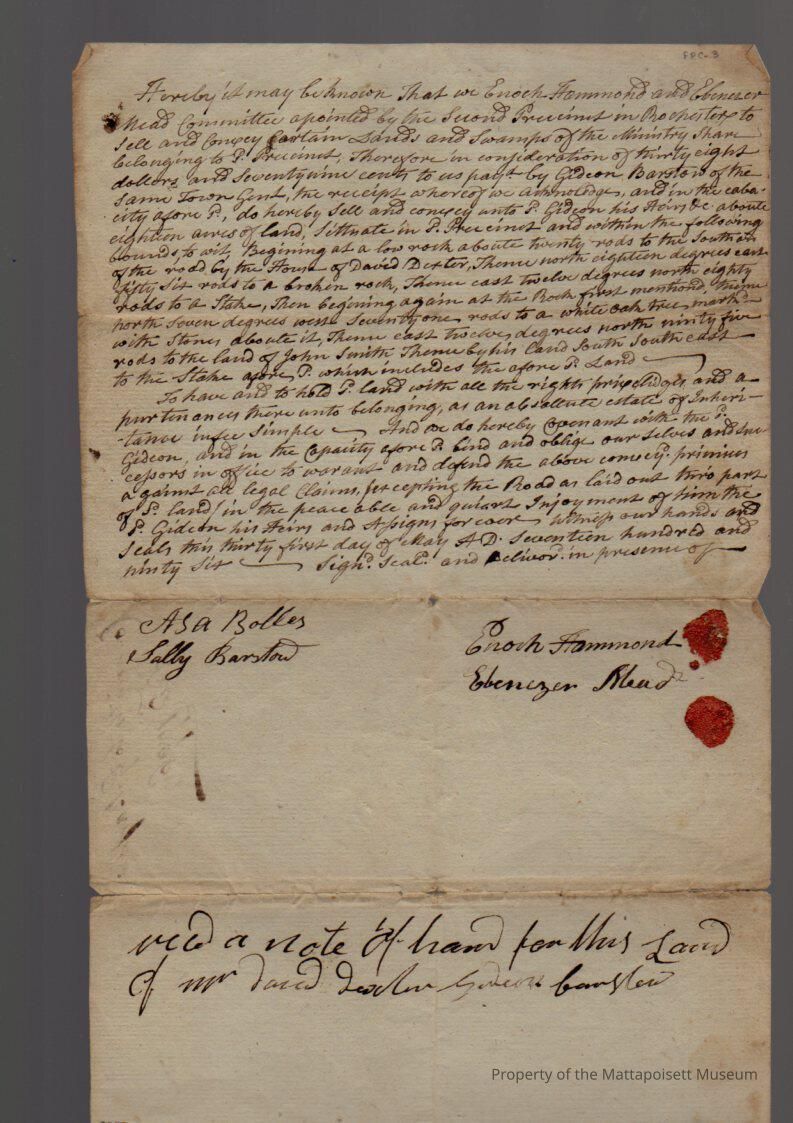 FPC-3
Hereby it may be known That we Enoch Hammond and Ebenezer
Mead Committee apointed by the Second Precinct in Rochester to
Sell and Convey Certain Lands and Swamps of the Ministry Share
belonging to Sd. Precinct, Therefore in consideration of thirty eight
dollors and Seventynine cents to us payd by Gideon Barstow of the
same Town Gent, the receipt whereof we acknoledge, and in the caba-
city afore Sd, do hereby Sell and convey unto Sd. Gideon his Heirs &c aboute
eighteen acres of land, Sittuate in Sd. Precinct and within the following
bounds, to wit. Begining at a low rock aboute twenty rods to the South
of the rodd by the House of David Dexter, Thence north eighteen degrees east
fifty Six rods to a broken rock, Thence east twelve degrees north eighty
rods to a Stake, Then begining again at the Rock first mentiond, thence
north Seven degrees west Seventyone rods to a white oak tree markd
with Stones aboute it, Thence east twelve degrees north ninty five
rods to the land of John Smith Thence by his Land South South east
to the Stake afore Sd. which includes the afore Sd. Land
To have and to hold Sd. land with all the rights and a
purtinances there unto belonging, as an absallute estate of Inheri-
-tance in fee Simple And we do hereby Covenant with the Sd.
Gideon, and in the Capacity afore Sd. bind and oblige our Selves and Suc-
cessors in office to warant and defend the above conveyd. primises
against all legal Claims, (excepting the Rodd as laid out thro part
of Sd. land) in the peaceable and quiart Injoyment of him the
Sd. Gideon his Heirs and Assigns forever witness our hands and
Seals this thirty first day of May A.D. Seventeen hundred and
ninty Six Signd. Seald. and Deliverd. in presence of
Asa Bolles
Sally Barstow
Enoch Hammond
Ebenezer Mead
recd a note of hand for this Land
of mr david dexter Gideon barstow
Property of the Mattapoisett Museum